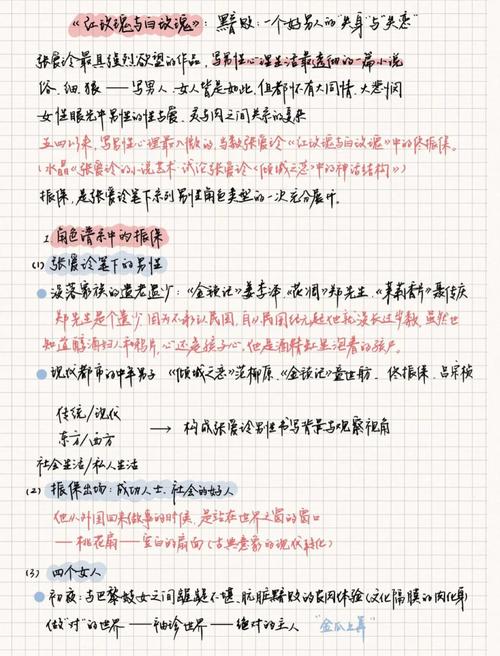 《红玫瑰与白玫瑰》:黯败:一个好男人的"失身"与"失恋"
张爱玲最具强烈欲望的作品,写男性心理生活最透彻的一篇小说
俗、细、狠——写男人、女人皆是如此,但都怀有大同情、大悲悯
女性眼光中男性的性与爱、灵与肉之间关系的复杂
五四以来,写男性心理最入微的,当数张爱玲《红玫瑰与白玫瑰》中的佟振保。
(水晶《张爱玲的小说艺术·试论张爱玲〈倾城之恋〉中的神话结构》)
振保,是张爱玲笔下系列男性角色类型的一次充分展开。
1. 角色谱系中的振保
(1) 张爱玲笔下的男性
没落家族的遗老遗少:《金锁记》姜季泽、《花凋》郑先生、《茉莉香片》聂传庆
郑先生是个遗少,因为不承认民国,自从民国纪元起他就没长过岁数。虽然也
知道醇酒妇人和鸦片,心还是孩子心。他是酒精缸里泡着的孩尸。
现代都市的中年男子 《倾城之恋》范柳原、《金锁记》童世舫、佟振保、吕宗桢
传统/现代
东方/西方 → 构成张爱玲男性书写背景与观察视角
社会生活/私人生活
(2) 振保出场:成功人士、社会的好人
他从外国回来做事的时候,是站在世界之窗的窗口
——桃花扇——空白的扇面(古典意象的现代转化)
(3) 四个女人
初夜:与巴黎妓女之间龃龉不堪、肮脏黯败的食肉体验(文化隔膜的肉化身)
做"对"的世界——袖珍世界——绝对的主人